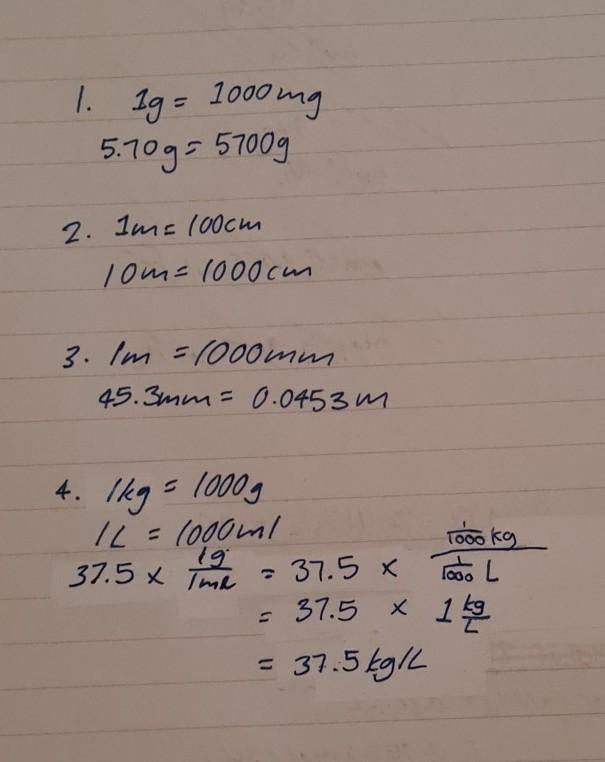 1. 1g = 1000mg
5.70g = 5700g
2. 1m = 100cm
10m = 1000cm
3. 1m = 1000mm
45.3mm = 0.0453m
4. 1kg = 1000g
1L = 1000ml
37.5 × 1g/1ml = 37.5 × 1/1000 kg / 1/1000 L
= 37.5 × 1 kg/L
= 37.5kg/L